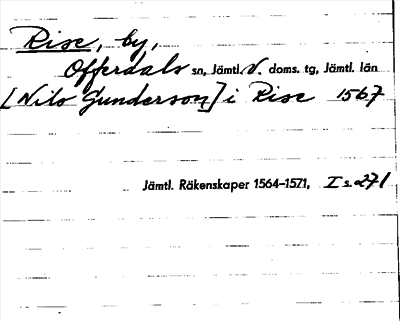 Rise, by,
Offerdals sn, Jämtl. V. doms. tg, Jämtl. län
[Nils Gunderson] i Rise 1567
Jämtl. Räkenskaper 1564–1571, I s. 271